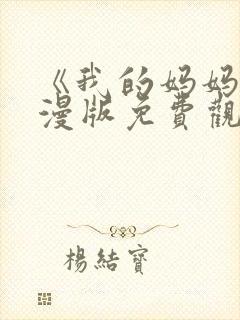 《我的妈妈
漫版免費觀
楊結寶